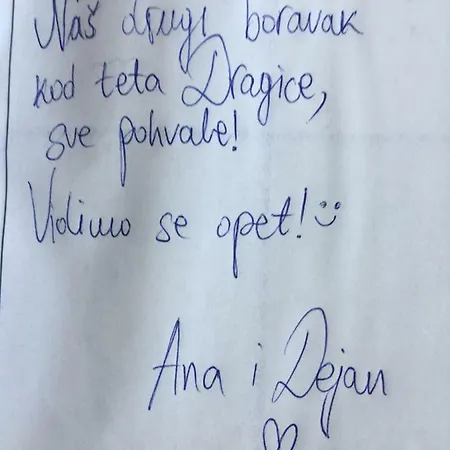 Naš drugi boravak
kod teta Dragice,
sve pohvale!
Vidimo se opet! :)
Ana i Dejan
♡